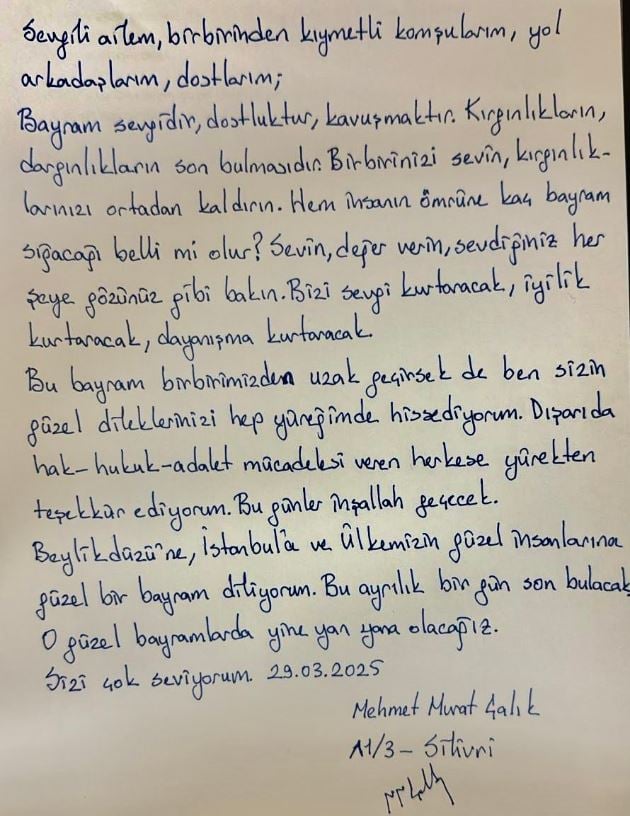 Sevgili ailem, birbirinden kıymetli komşularım, yol
arkadaşlarım, dostlarım;
Bayram sevgidir, dostluktur, kavuşmaktır. Kırgınlıkların,
dargınlıkların son bulmasıdır. Birbirinizi sevin, kırgınlık-
larınızı ortadan kaldırın. Hem insanın ömrüne kaç bayram
sığacağı belli mi olur? Sevin, değer verin, sevdiğiniz her
şeye gözünüz gibi bakın. Bizi sevgi kurtaracak, iyilik
kurtaracak, dayanışma kurtaracak.
Bu bayram birbirimizden uzak geçirsek de ben sizin
güzel dileklerinizi hep yüreğimde hissediyorum. Dışarıda
hak-hukuk-adalet mücadelesi veren herkese yürekten
teşekkür ediyorum. Bu günler inşallah geçecek.
Beylikdüzü'ne, İstanbul'a ve Ülkemizin güzel insanlarına
güzel bir bayram diliyorum. Bu ayrılık bir gün son bulacak
O güzel bayramlarda yine yan yana olacağız.
Sizi çok seviyorum. 29.03.2025
Mehmet Murat Çalık
A1/3 - Silivri